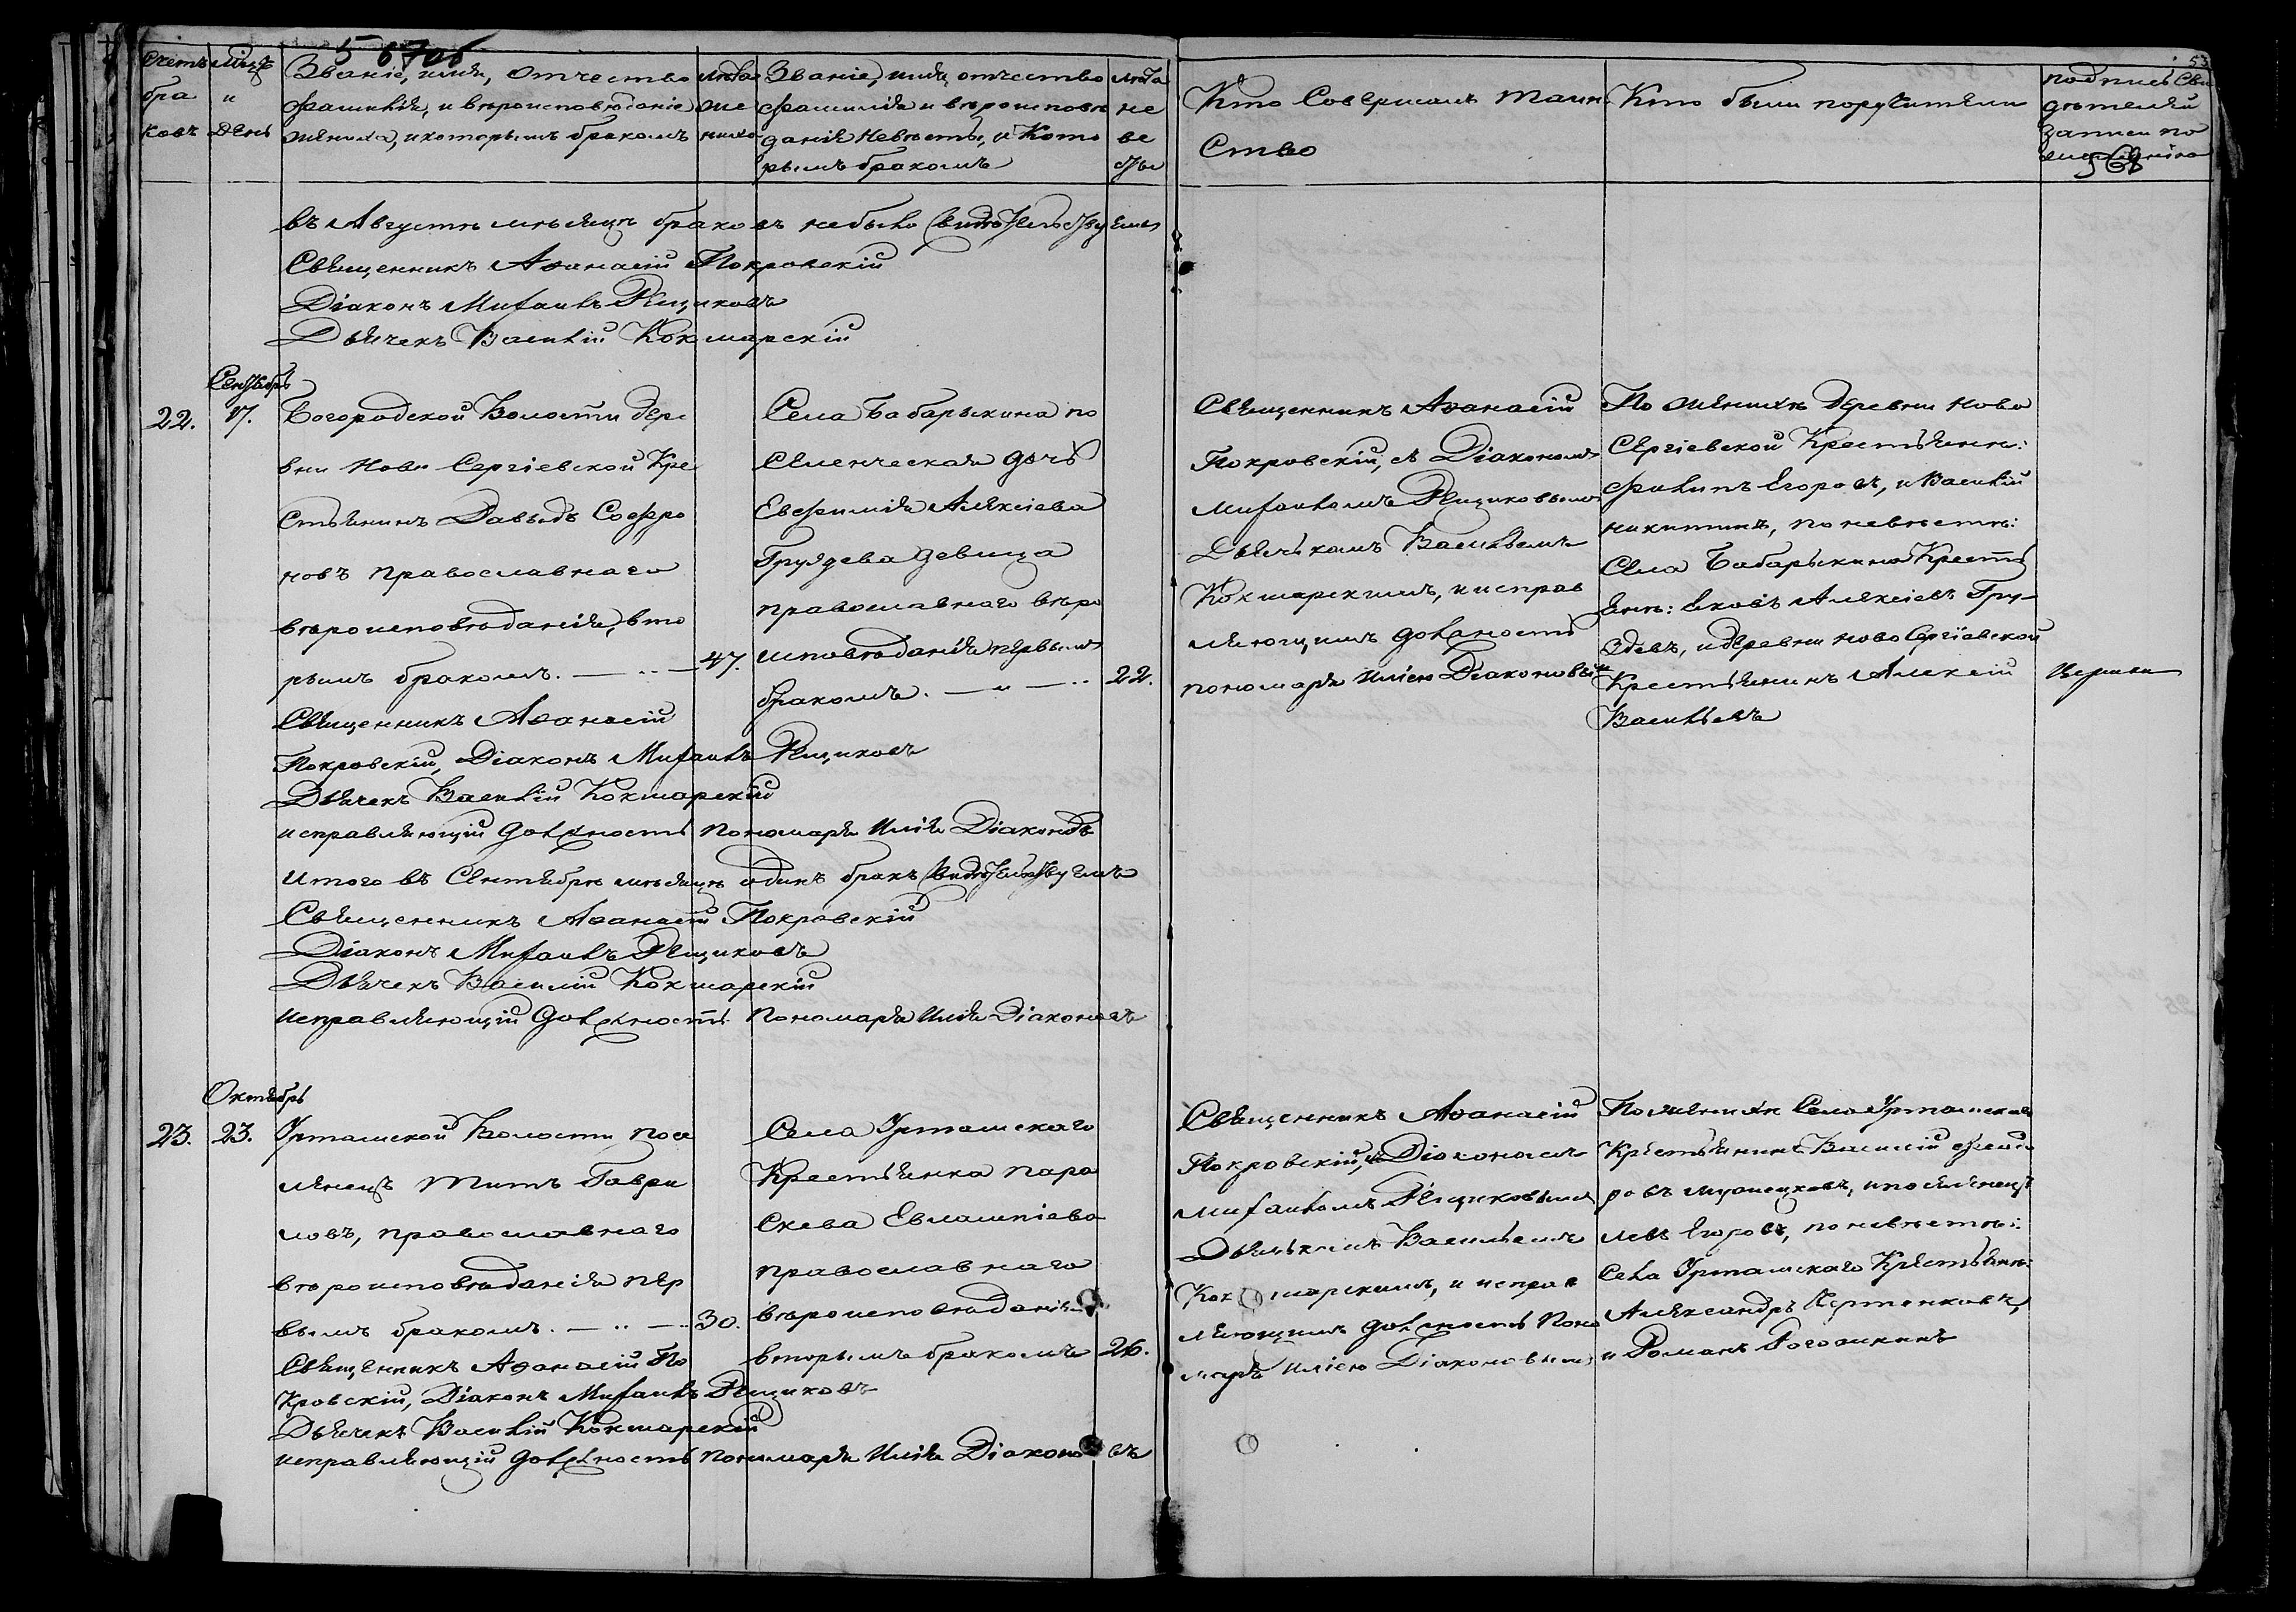 Счетъ бра ковъ
Мцъ и День
Званіе, имя, отчество
фамилія, и вѣроисповѣданіе
жениха, и которымъ бракомъ
лѣта же ниха
Званіе, имя, отчество
фамилія и вѣроисповѣ
даніе невѣсты, и кото
рымъ бракомъ
лѣта не ве сты
Кто совершалъ таин
ство
Кто были поручители
подпись сви
дѣтелей
записи по
53
въ Августѣ мѣсяцѣ браковъ небыло свидѣтельствуемъ
Священникъ Аѳанасій Покровскій
Діаконъ Михаилъ Рещиковъ
Дьячекъ Василій Кокшарскій
Сентябрь
22.
17.
Богородской Волости дере
вни Ново Сергіевской Кре
стьянинъ Давыдъ Софро
новъ православнаго
вѣроисповѣданія, вто
рымъ бракомъ.
47.
Священникъ Аѳанасій
Покровскій, Діаконъ Михаилъ Рещиковъ
Дьячекъ Василій Кокшарскій
исправляющій должность пономаря Илія Діаконовъ
Села Бабарыкина по
селенческая дочь
Евфимія Алексіева
Груздева девица
православнаго вѣро
исповѣданія первымъ
бракомъ.
22.
Священникъ Аѳанасій
Покровскій, съ Діакономъ
Михаиломъ Рещиковымъ
Дьячькомъ Васильемъ
Кокшарскимъ, и исправ
ляющимъ должность
пономаря Иліею Діаконовымъ
По женихѣ деревни Ново
Сергіевской Крестьянн:
Филипъ Егоровъ, и Василій
Никитинъ, по невѣстѣ:
Села Бабарыкина Кресть
янн: Яковъ Алексіевъ Гру-
здевъ, и деревни Ново Сергіевской
Крестьянинъ Алексій
Васильевъ
Итого въ Сентябрѣ мѣсяцѣ одинъ бракъ свидѣтельствуемъ
Священникъ Аѳанасій Покровскій
Діаконъ Михаилъ Рещиковъ
Дьячекъ Василій Кокшарскій
исправляющій должность Пономаря Илія Діаконовъ
Октябрь
23.
23.
Уртамской Волости посе
ленецъ Титъ Гаври
ловъ, православнаго
вѣроисповѣданія пер
вымъ бракомъ.
30.
Священникъ Аѳанасій По
кровскій, Діаконъ Михаилъ Рещиковъ
Дьячекъ Василій Кокшарскій
исправляющій должность пономаря Илія Діаконовъ
Села Уртамскаго
Крестьянка Пара
скева Евлампіева
православнаго
вѣроисповѣданія
вторымъ бракомъ
26.
Священникъ Аѳанасій
Покровскій, съ Діакономъ
Михаиломъ Рещиковымъ
Дьячькомъ Васильемъ
Кокшарскимъ, и исправ
ляющимъ должность Поно
маря Иліею Діаконовымъ
По женихѣ Села Уртамскаго
Крестьянинъ Василій Федо
ровъ, и поселенецъ
Левъ Егоровъ, по невѣстѣ:
Села Уртамскаго Крестьянн:
Александръ
и Романъ Рогожкинъ